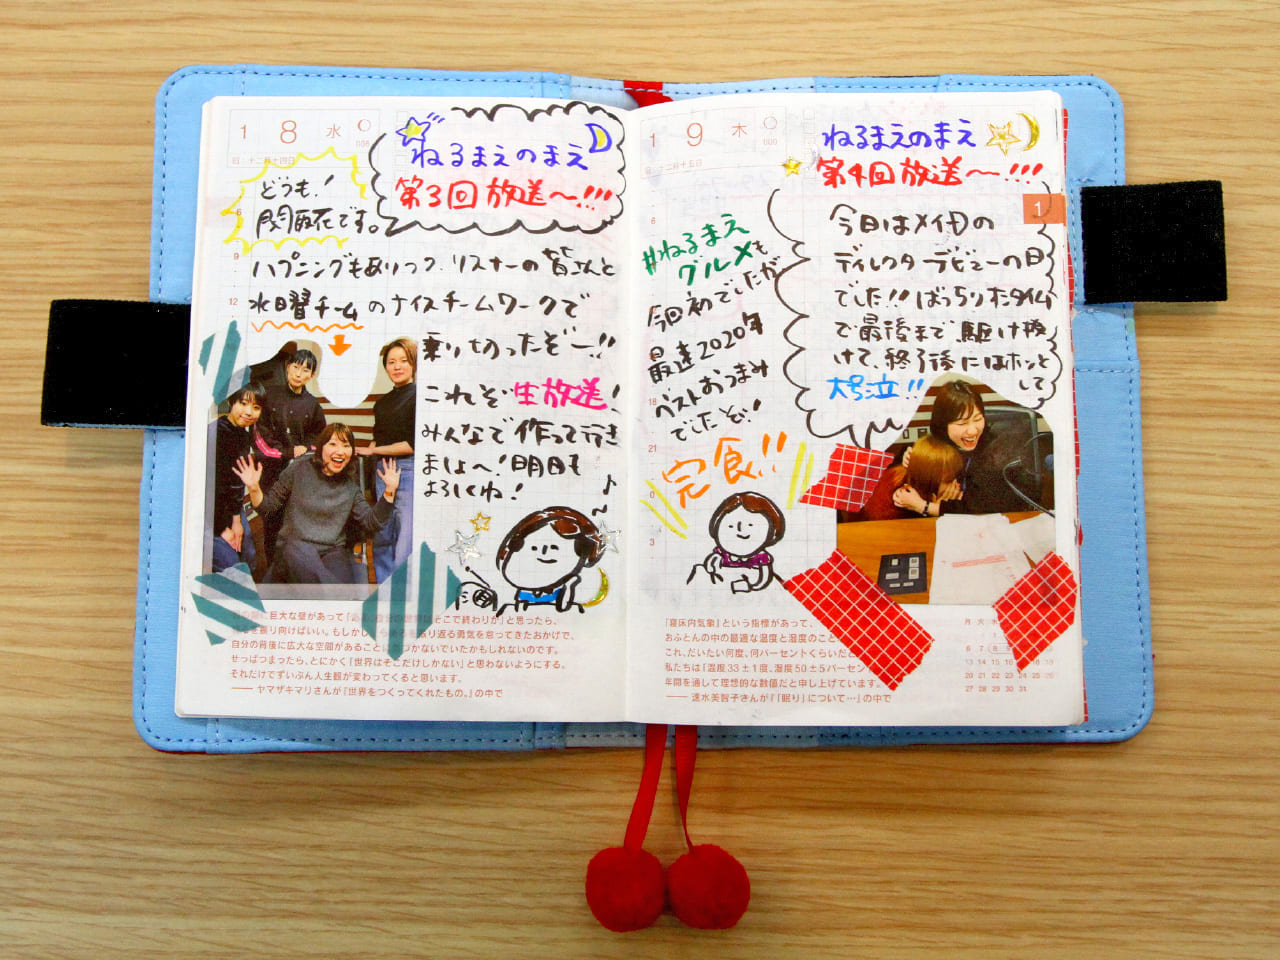 1 8 水
旧 十二月十四日
008
ねるまえのまえ
第3回放送〜!!!
どうも!
関取花です。
ハプニングもありつつ、リスナーの皆さんと
水曜チームのナイスチームワークで
乗り切ったぞー!!
これぞ生放送!
みんなで作って行き
ましょ〜!明日も
よろしくね!
6
9
12
自分の背後に広大な空間があることに気づかないでいたかもしれないのです。
せっぱつまったら、とにかく「世界はそこだけしかない」と思わないようにする。
それだけでずいぶん人生観が変わってくると思います。
——ヤマザキマリさんが『世界をつくってくれたもの。』の中で
1 9 木
009
旧 十二月十五日
ねるまえのまえ
第4回放送〜!!!
1
#ねるまえ
グルメも
今回初でしたが
最速2020年
ベストおつまみ
でしたぞ!
完食!!
今日はメイ母の
ディレクターデビューの日
でした!!ばっちりなタイム
で最後まで駆け抜
けて、終了後にはホッと
して
大号泣!!
6
18
21
0
3
「寝床内気象」という指標があって、
おふとんの中の最適な温度と湿度のこと
これ、だいたい何度、何パーセントくらいだ
私たちは「温度33±1度、湿度50±5パーセン
年間を通して理想的な数値だと申し上げています。
——速水美智子さんが『「眠り」について…』の中で
月 火 水
6 7 8 9
13 14 15 16 17 18 19
20 21 22 23 24 25 26
27 28 29 30 31